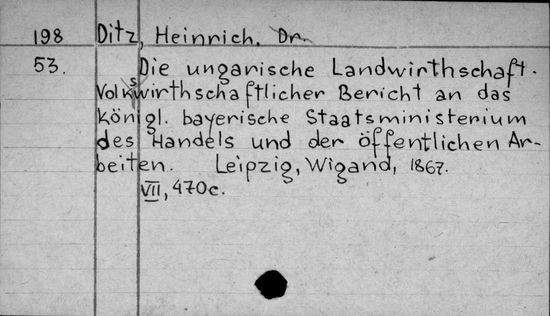 198 Ditz, Heinrich, Dr.
53. Die ungarische Landwirthschaft.
Volkswirthschaftlicher Bericht an das
königl. bayerische Staatsministerium
des Handels und der öffentlichen Ar-
beiten. Leipzig, Wigand, 1867.
VII, 470c.